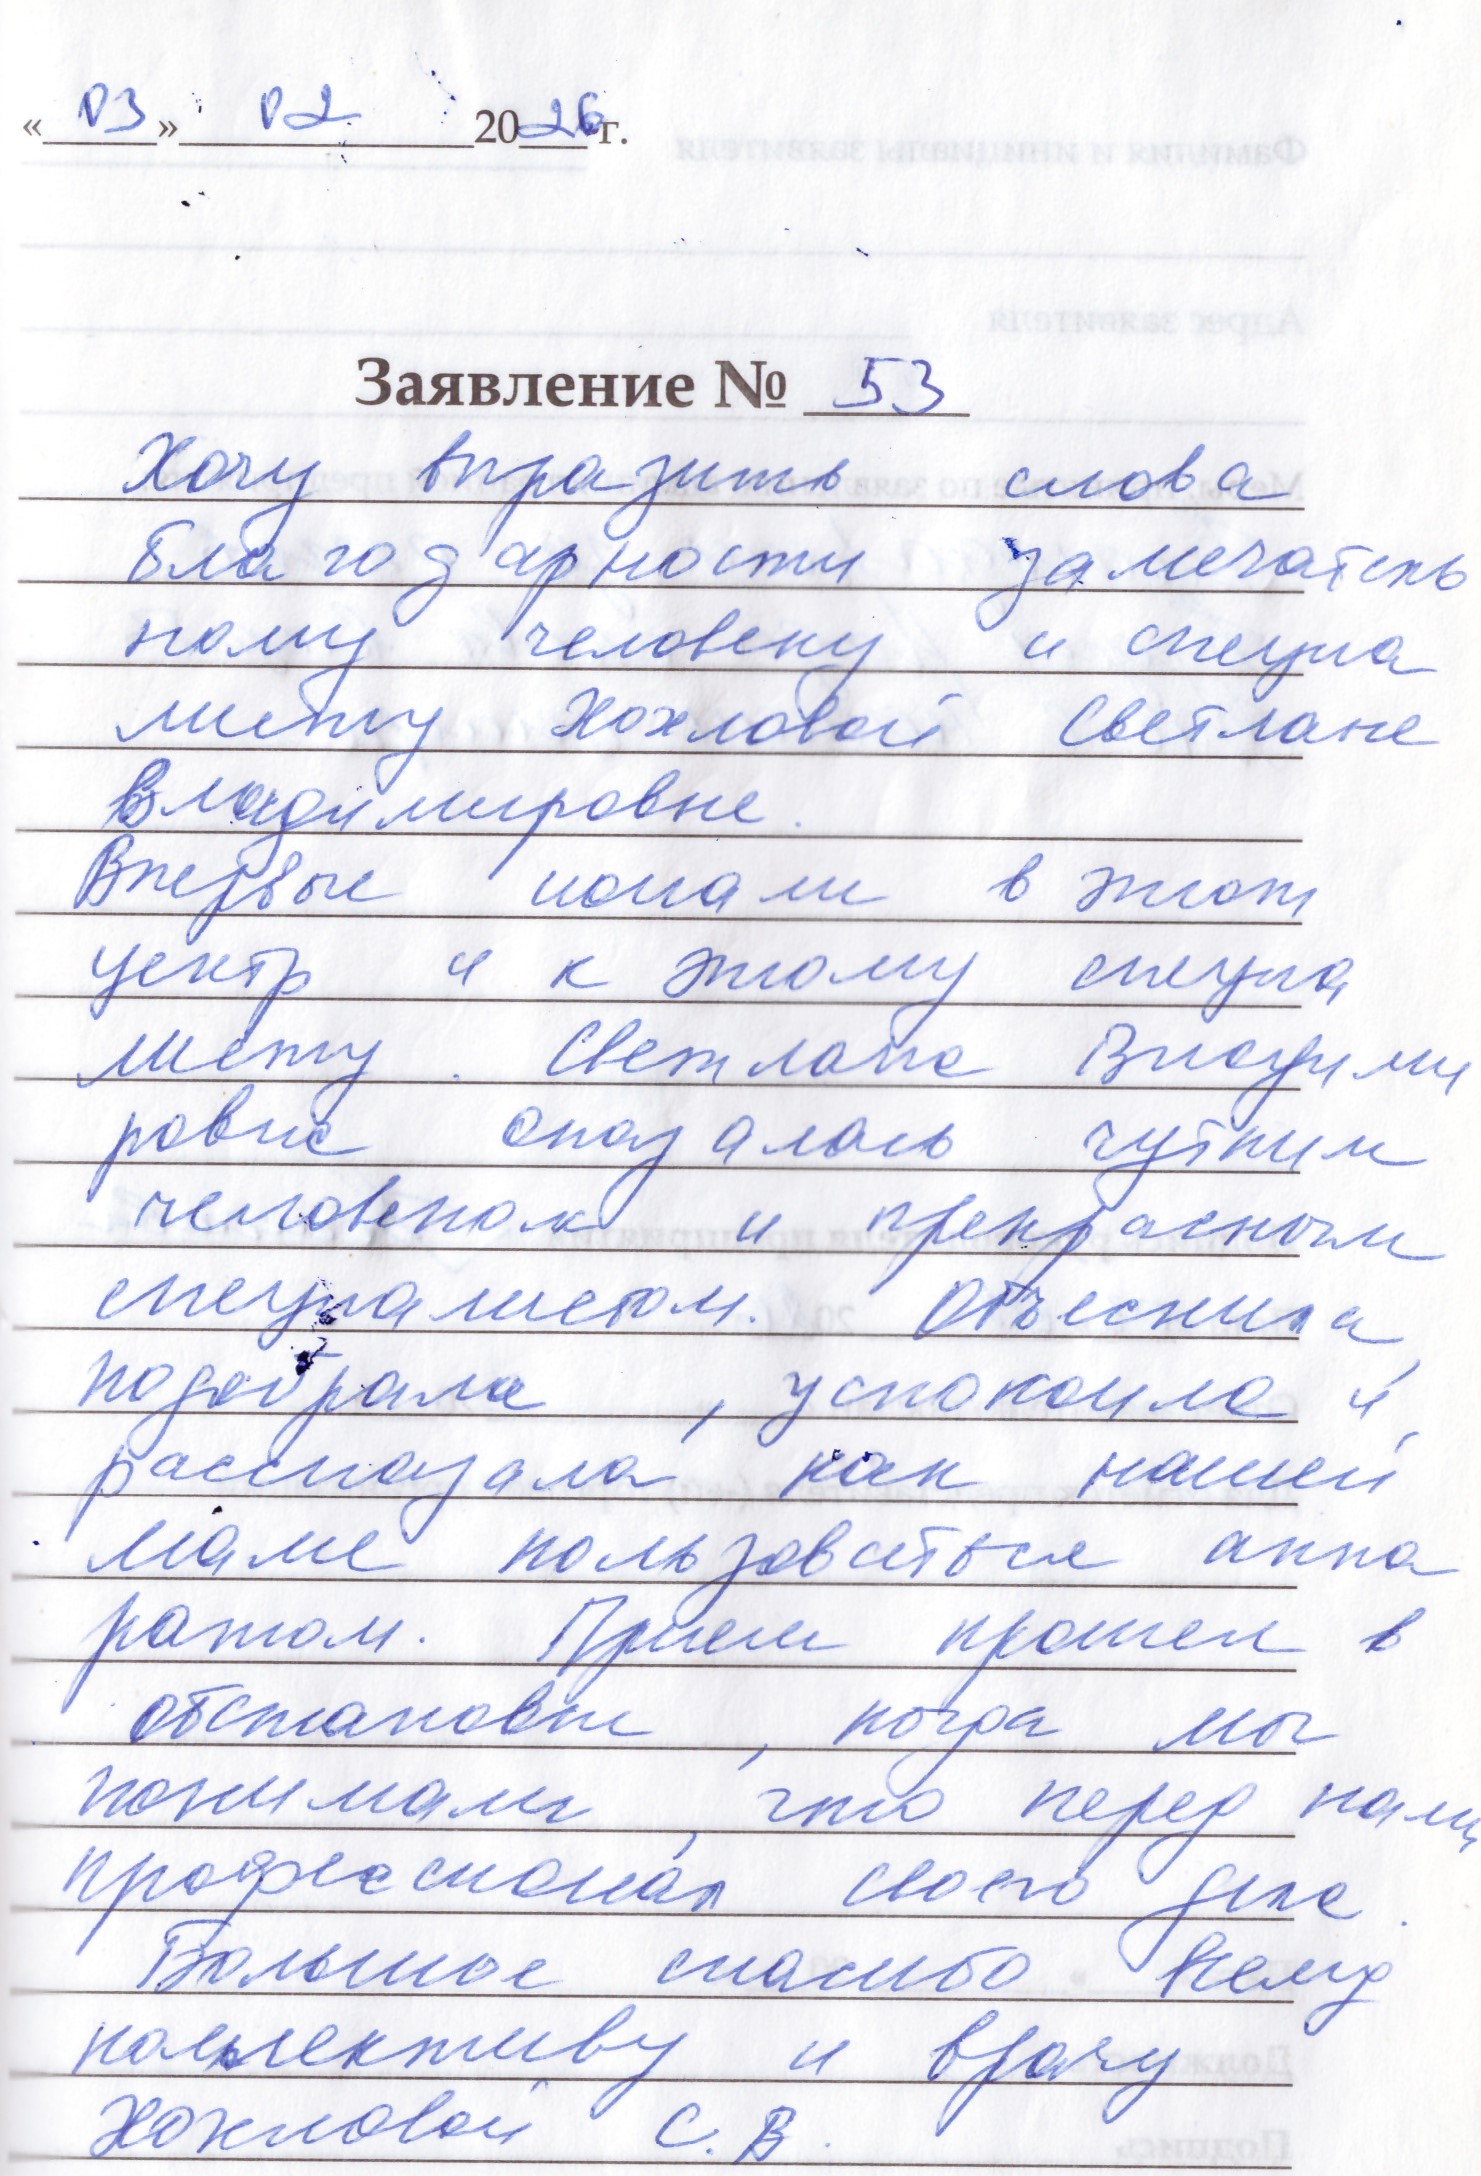 «03» 02 2026 г.
Заявление № 53
Хочу выразить слова
благодарности замечатель
ному человеку и специа
листу Хохловой Светлане
Владимировне.
Впервые попали в этот
центр и к этому специа
листу. Светлана Владими
ровна оказалась чутким
человеком и прекрасным
специалистом. Объеснила,
подобрала, успокоила и
рассказала как нашей
маме пользоваться аппа
ратом. Прием прошел в
обстановке, когда мы
понимали, что перед нами
профессионал своего дела.
Большое спасибо всему
коллективу и врачу
Хохловой С.В.